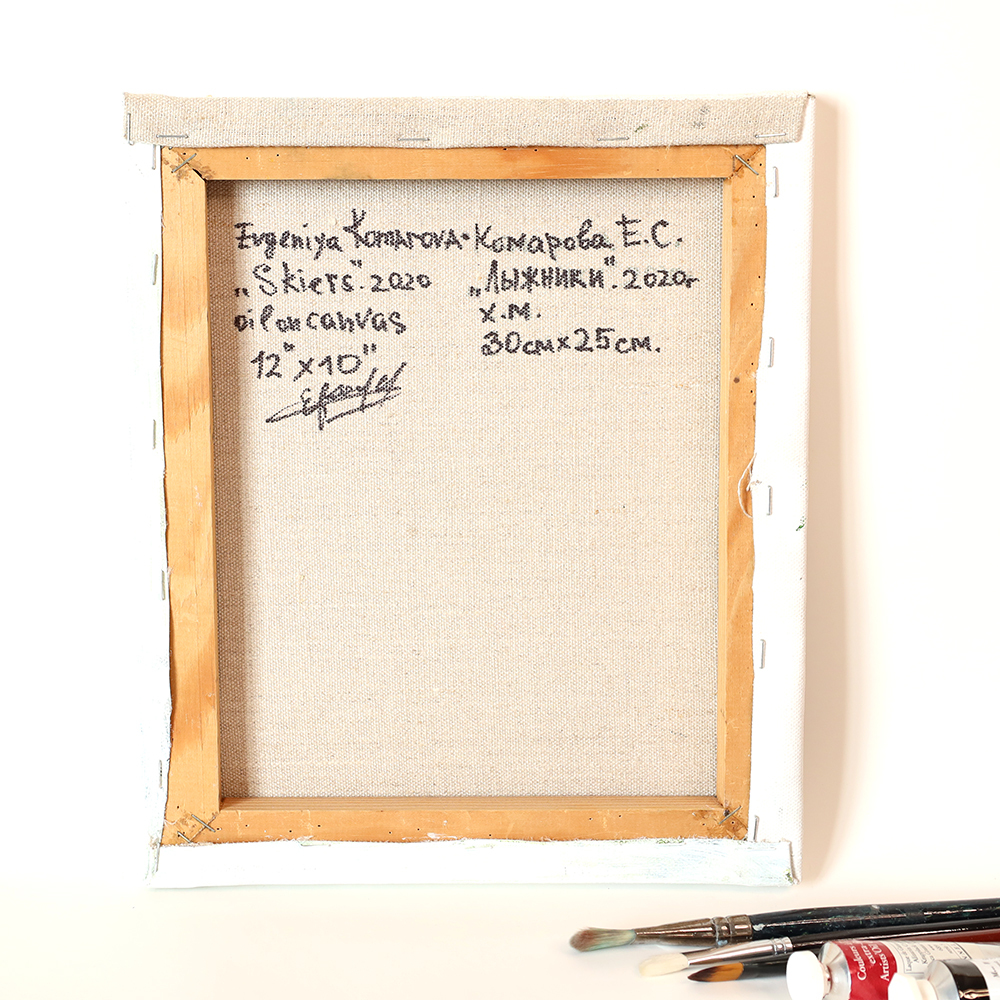 Evgeniya Komarova.
„Skiers". 2020
oil on canvas
12" x 10"
Комарова Е.С.
„Лыжники". 2020г
х.м.
30см x 25см.
Couleurs
Artists' O